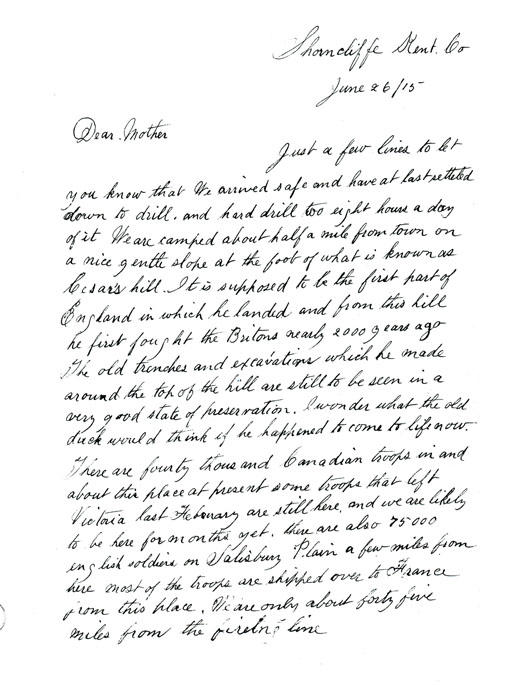 Shorncliffe Kent. Co
June 26/15
Dear Mother
Just a few lines to let
you know that We arrived safe and have at last settled
down to drill. and hard drill too eight hours a day
of it We are camped about half a mile from town on
a nice gentle slope at the foot of what is known as
Cesar's hill. It is supposed to be the first part of
England in which he landed and from this hill
he first fought the Britons nearly 2000 years ago
The old trenches and excavations which he made
around the top of the hill are still to be seen in a
very good state of preservation. I wonder what the old
duck would think if he happened to come to life now.
There are fourty thousand Canadian troops in and
about this place at present some troops that left
Victoria last Febuary are still here, and we are likely
to be here for months yet. there are also 75000
english soldiers on Salisbury Plain a few miles from
here most of the troops are shipped over to France
from this place. We are only about forty five
miles from the fireing line